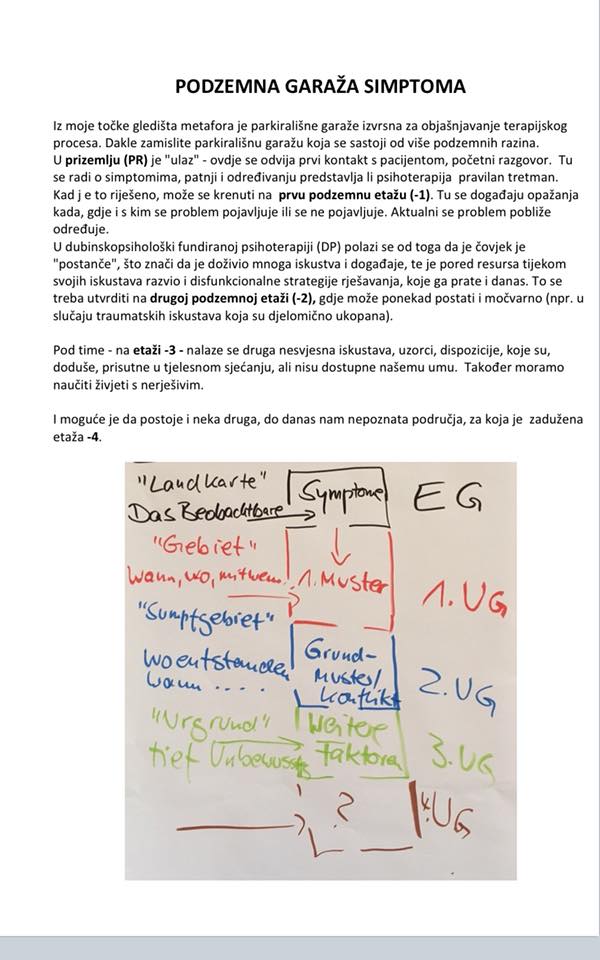 PODZEMNA GARAŽA SIMPTOMA
Iz moje točke gledišta metafora je parkirališne garaže izvrsna za objašnjavanje terapijskog
procesa. Dakle zamislite parkirališnu garažu koja se sastoji od više podzemnih razina.
U prizemlju (PR) je "ulaz" - ovdje se odvija prvi kontakt s pacijentom, početni razgovor. Tu
se radi o simptomima, patnji i određivanju predstavlja li psihoterapija pravilan tretman.
Kad j e to riješeno, može se krenuti na prvu podzemnu etažu (-1). Tu se događaju opažanja
kada, gdje i s kim se problem pojavljuje ili se ne pojavljuje. Aktualni se problem pobliže
određuje.
U dubinskopsihološki fundiranoj psihoterapiji (DP) polazi se od toga da je čovjek je
"postanče", što znači da je doživio mnoga iskustva i događaje, te je pored resursa tijekom
svojih iskustava razvio i disfunkcionalne strategije rješavanja, koje ga prate i danas. To se
treba utvrditi na drugoj podzemnoj etaži (-2), gdje može ponekad postati i močvarno (npr. u
slučaju traumatskih iskustava koja su djelomično ukopana).
Pod time - na etaži -3 - nalaze se druga nesvjesna iskustava, uzorci, dispozicije, koje su,
doduše, prisutne u tjelesnom sjećanju, ali nisu dostupne našemu umu. Također moramo
naučiti živjeti s nerješivim.
I moguće je da postoje i neka druga, do danas nam nepoznata područja, za koja je zadužena
etaža -4.
"Landkarte" Symptome EG
Das Beobachtbare
"Gebiet"
Wann, wo, mit wem.. 1. Muster 1. UG
"Sumpfgebiet"
Wo entstanden Grund-
wann .... Muster/ 2. UG
Konflikt
"Urgrund" Weitere
tief Unbewusstes Faktoren 3. UG
? 4. UG